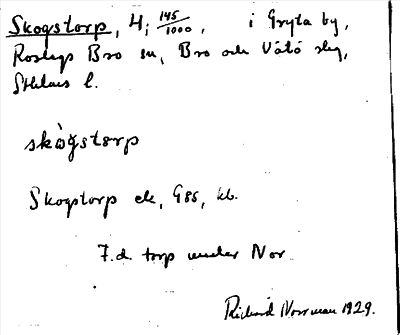 Skogstorp, H; 145/1000, i Gryta by,
Roslags Bro sn, Bro och Vätö skg,
Sthlms l.
skògstorp
Skogstorp ek, G85, kb.
F.d. torp under Nor
Richard Norrman 1929.